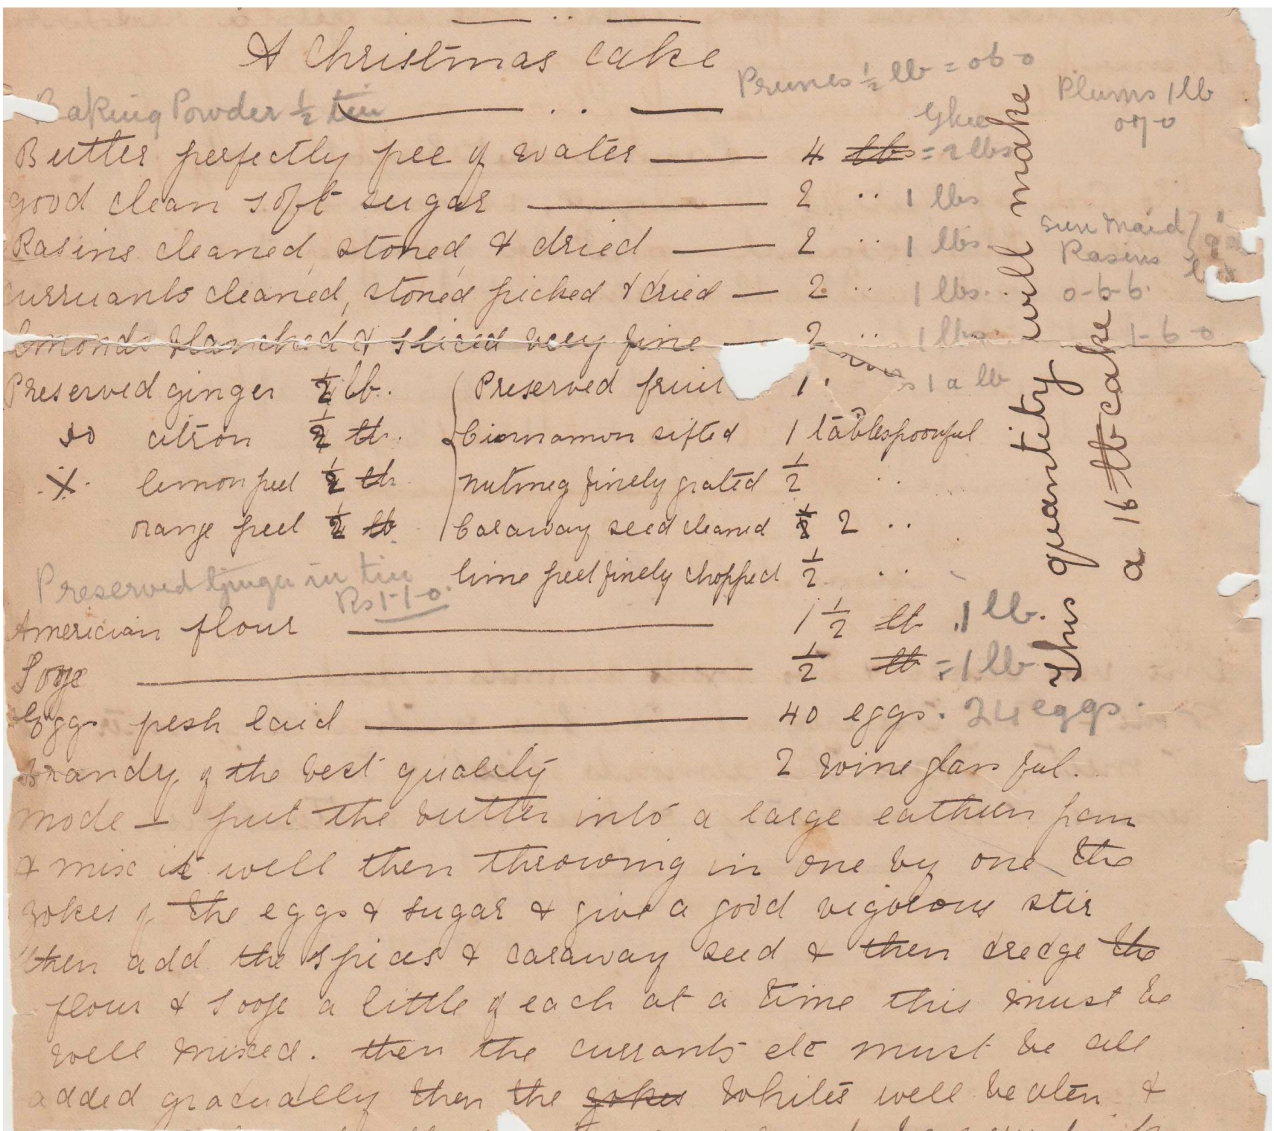 A Christmas Cake
Prunes ½ lb = 0 6-0
Plums 1 lb
0-7-0
Baking Powder ½ tin
Ghee
Butter perfectly free of water — 4 lbs = 2 lbs
good clean soft sugar — 2 .. 1 lbs
Rasins cleaned, stoned & dried — 2 .. 1 lbs.
sun maid
Rasins
curruants cleaned, stoned picked & dried — 2 .. 1 lbs.
0-6-6.
lmonds blanched & sliced very fine — 2 .. 1 lbs
1-6-0
Preserved ginger ½ lb. Preserved fruit 1 . 1 a lb
do citron ½ lb. Cinnamon sifted 1 tablespoonful
.X. lemon peel ½ lb Nutmeg finely grated ½ ..
orange peel ½ lb. Caraway seed cleaned 2 ..
lime peel finely chopped ½ ..
Preserved Ginger in tin
Rs 1-1-0.
Amercian flour — 1½ lb 1 lb.
Sooje — ½ lb = 1 lb
Eggs fresh laid — 40 eggs. 24 eggs.
Brandy of the best quality 2 wine glass ful.
This quantity will make
a 16 lb cake
mode — put the butter into a large eathern pan
& mix it well then throwing in one by one the
yokes of the eggs & sugar & give a good vigorous stir
then add the spices & caraway seed & then dredge the
flour & sooje a little of each at a time this must be
well mixed. then the currants etc must be all
added gradually then the yokes whites well beaten &